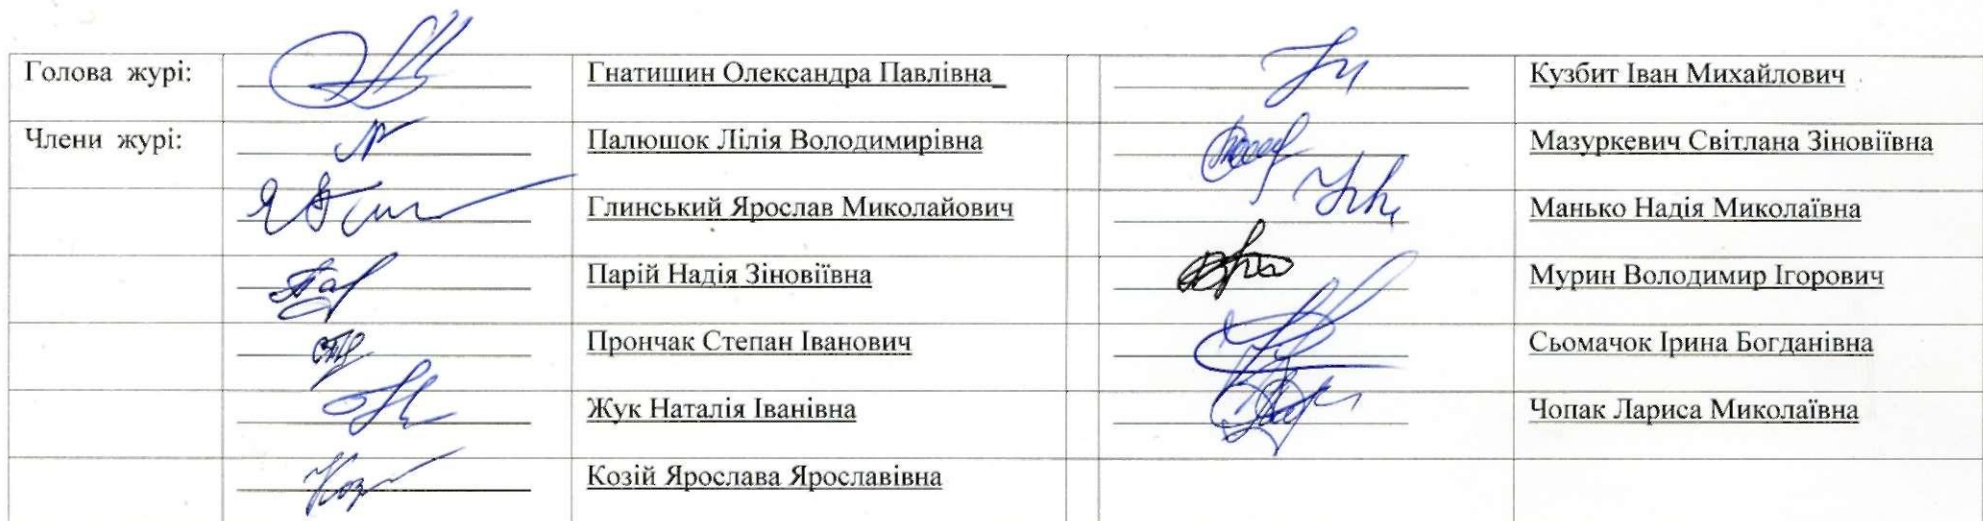 Голова журі: Гнатишин Олександра Павлівна_ Кузбит Іван Михайлович
Члени журі: Палюшок Лілія Володимирівна Мазуркевич Світлана Зіновіївна
Глинський Ярослав Миколайович Манько Надія Миколаївна
Парій Надія Зіновіївна Мурин Володимир Ігорович
Прончак Степан Іванович Сьомачок Ірина Богданівна
Жук Наталія Іванівна Чопак Лариса Миколаївна
Козій Ярослава Ярославівна